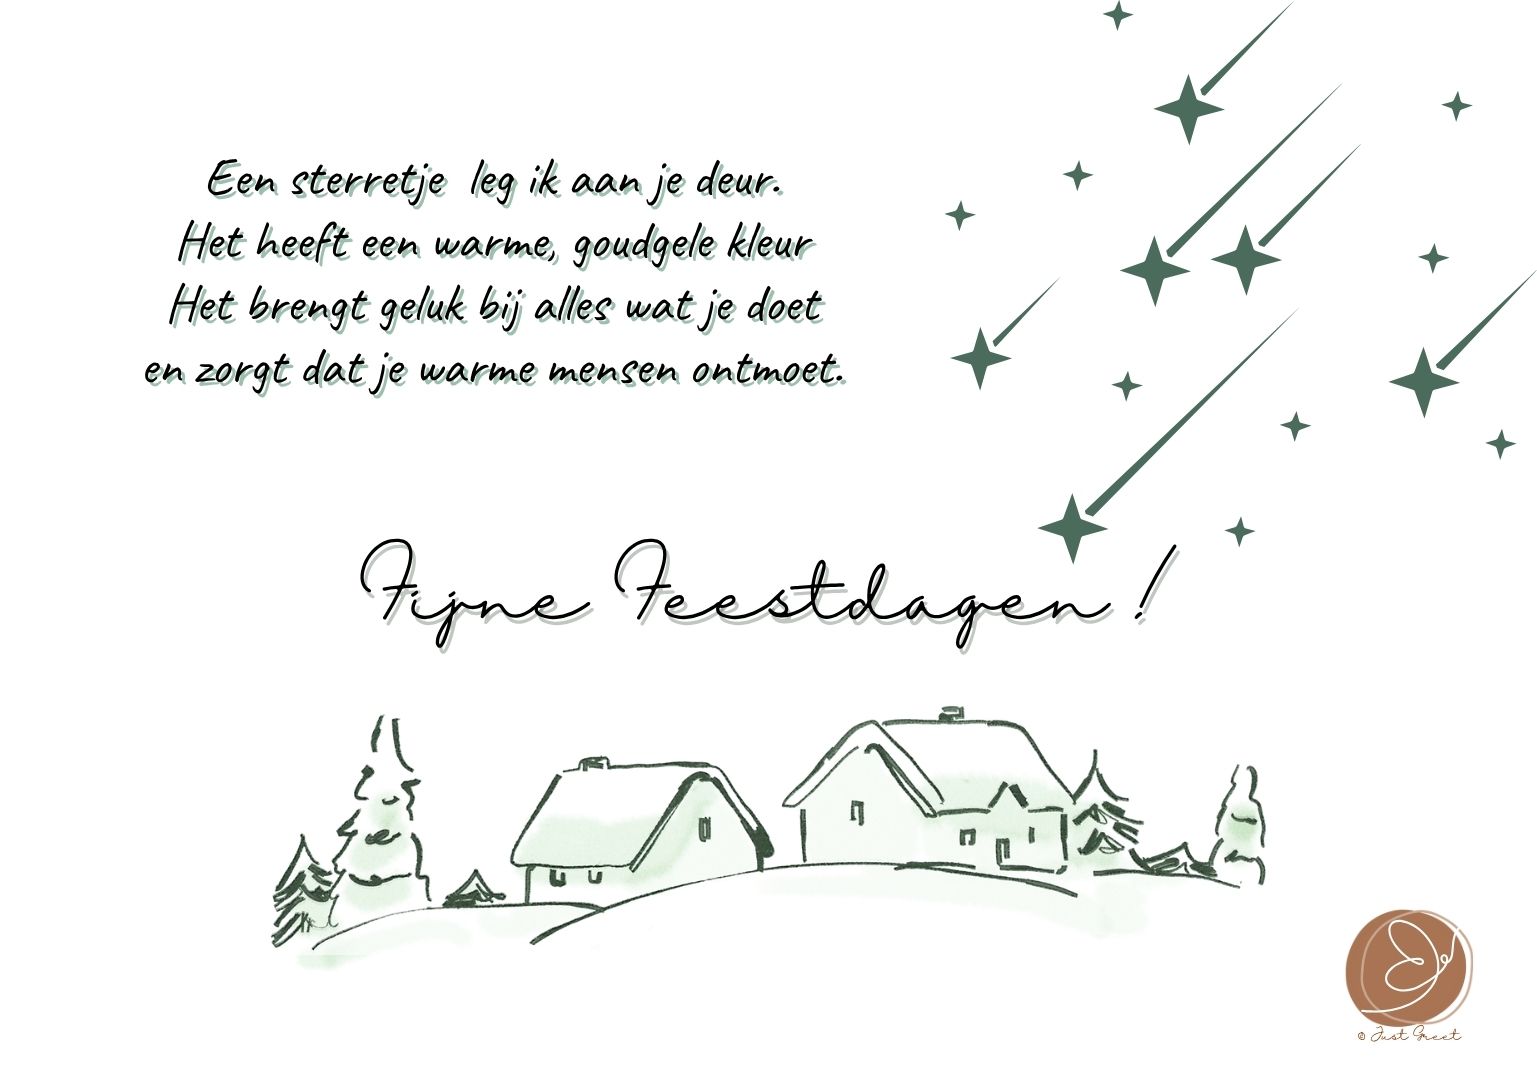 Een sterretje leg ik aan je deur.
Het heeft een warme, goudgele kleur
Het brengt geluk bij alles wat je doet
en zorgt dat je warme mensen ontmoet.
Fijne Feestdagen !
© Just Greet